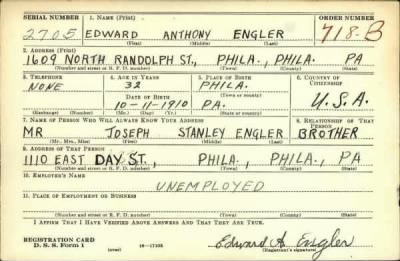 SERIAL NUMBER 1. NAME (Print) ORDER NUMBER
2705 EDWARD ANTHONY ENGLER 718-B
(First) (Middle) (Last)
2. ADDRESS (Print)
1609 NORTH RANDOLPH ST., PHILA., PHILA. PA
(Number and street or R. F. D. number) (Town) (County) (State)
3. TELEPHONE 4. AGE IN YEARS 5. PLACE OF BIRTH 6. COUNTRY OF CITIZENSHIP
NONE 32 PHILA.
DATE OF BIRTH (Town or county)
10-11-1910 PA. U.S.A.
(Exchange) (Number) (Mo.) (Day) (Yr.) (State or country)
7. NAME OF PERSON WHO WILL ALWAYS KNOW YOUR ADDRESS 8. RELATIONSHIP OF THAT PERSON
MR JOSEPH STANLEY ENGLER BROTHER
(Mr., Mrs., Miss) (First) (Middle) (Last)
9. ADDRESS OF THAT PERSON
1110 EAST DAY ST., PHILA., PHILA., PA
(Number and street or R. F. D. number) (Town) (County) (State)
10. EMPLOYER'S NAME
UNEMPLOYED
11. PLACE OF EMPLOYMENT OR BUSINESS
(Number and street or R. F. D. number) (Town) (County) (State)
I AFFIRM THAT I HAVE VERIFIED ABOVE ANSWERS AND THAT THEY ARE TRUE.
REGISTRATION CARD
D. S. S. Form 1 (over) 16-17105 Edward A. Engler
(Registrant's signature)